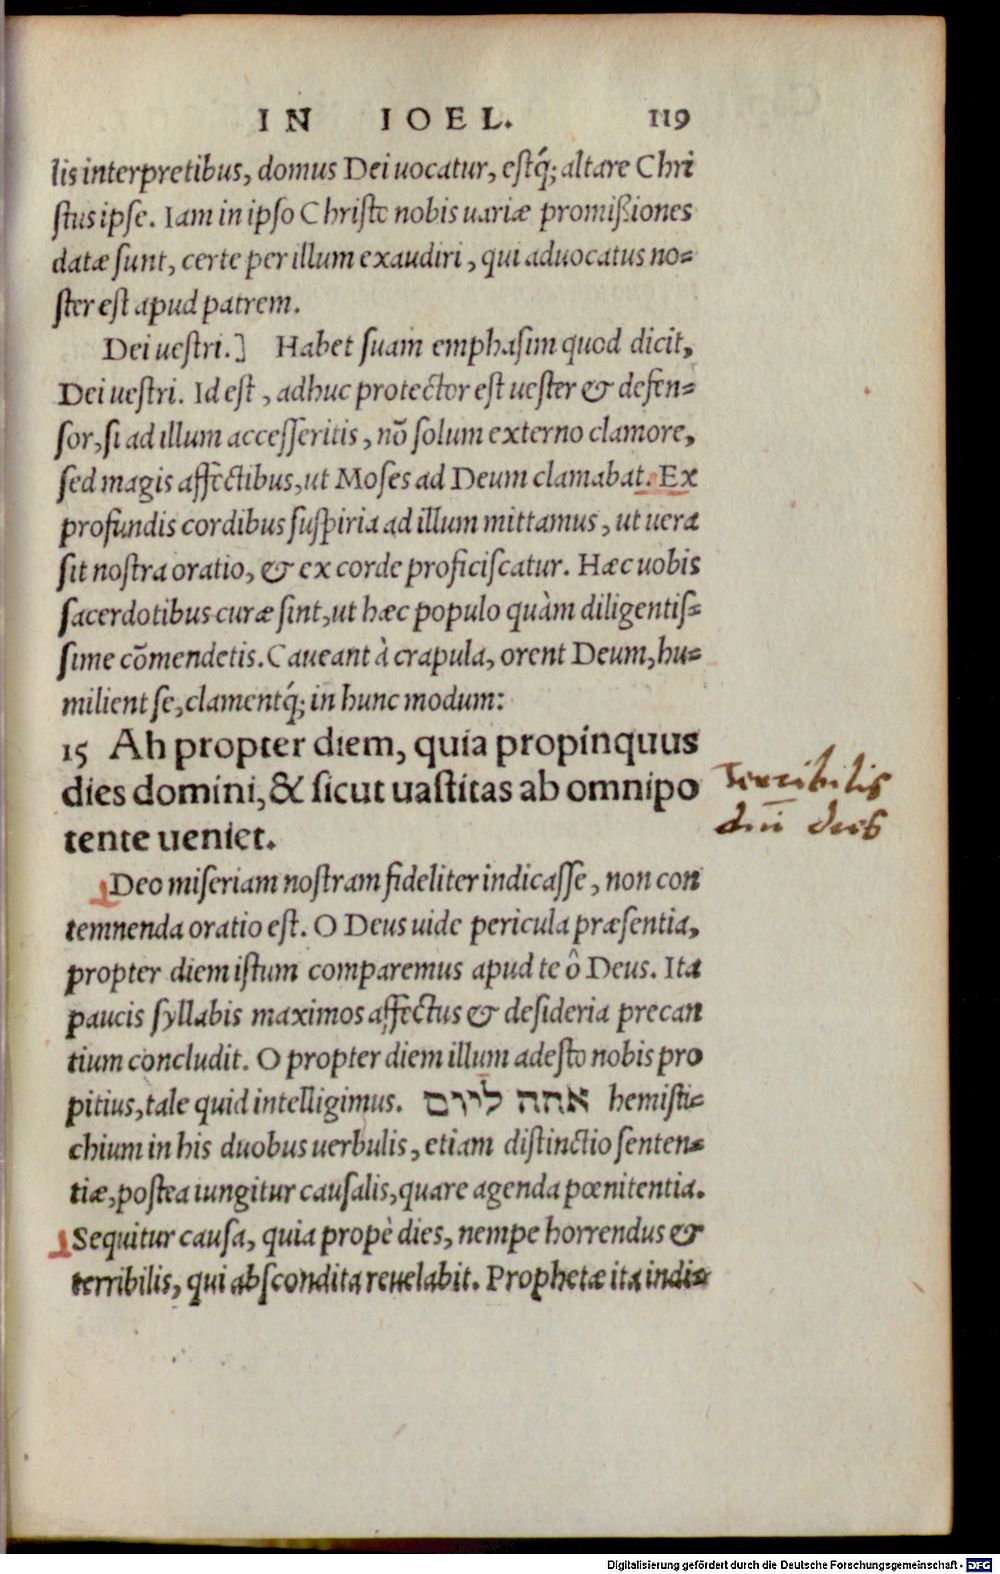 IN IOEL. 119
lis interpretibus, domus Dei uocatur, estq́; altare Chri
stus ipse. Iam in ipso Christo nobis uariæ promißiones
datæ sunt, certe per illum exaudiri, qui aduocatus no-
ster est apud patrem.
Dei uestri.] Habet suam emphasim quod dicit,
Dei uestri. Id est, adhuc protector est uester & defen-
sor, si ad illum accesseritis, nõ solum externo clamore,
sed magis affectibus, ut Moses ad Deum clamabat. Ex
profundis cordibus suspiria ad illum mittamus, ut uera
sit nostra oratio, & ex corde proficiscatur. Hæc uobis
sacerdotibus curæ sint, ut hæc populo quàm diligentis-
sime cõmendetis. Caueant à crapula, orent Deum, hu-
milient se, clamentq́; in hunc modum:
15 Ah propter diem, quia propinquus
dies domini, & sicut uastitas ab omnipo
tente ueniet.
Terribilis
dn̄i dies
Deo miseriam nostram fideliter indicasse, non con
temnenda oratio est. O Deus uide pericula præsentia,
propter diem istum comparemus apud te ô Deus. Ita
paucis syllabis maximos affectus & desideria precan
tium concludit. O propter diem illum adesto nobis pro
pitius, tale quid intelligimus. אהה ליום hemisti-
chium in his duobus uerbulis, etiam distinctio senten-
tiæ, postea iungitur causalis, quare agenda pœnitentia.
Sequitur causa, quia propè dies, nempe horrendus &
terribilis, qui abscondita reuelabit. Prophetæ ita indi-
Digitalisierung gefördert durch die Deutsche Forschungsgemeinschaft - DFG